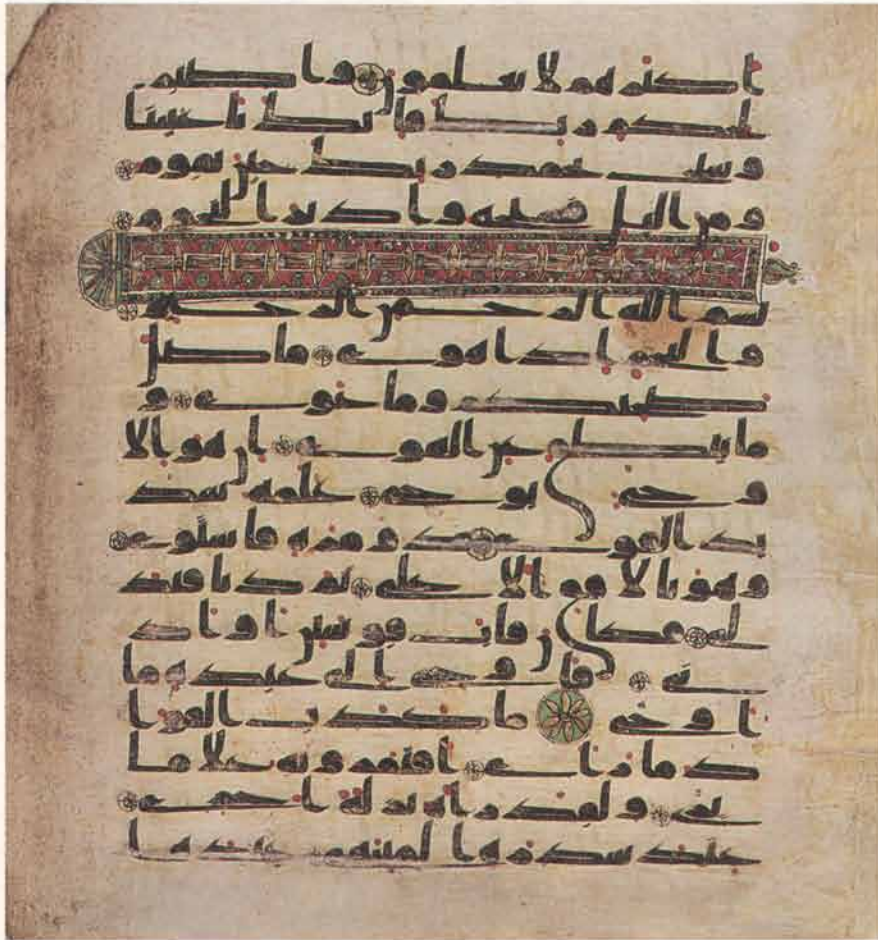 اكثرهم لا يعلمون واصبر
لحكم ربك فانك باعيننا
وسبح بحمد ربك حين تقوم
ومن اليل فسبحه وادبر النجوم
بسم الله الرحمن الرحيم
والنجم اذا هوى ما ضل
صحبكم وما غوى و
ما ينطق عن الهوى ان هو الا
وحى يوحى علمه شد
يد القوى ذو مره فاستوى
وهو بالافق الاعلى ثم دنا فتد
لى فكان قاب قوسين او اد
نى فاوحى الى عبده ما
اوحى ما كذب الفوا
د ما راى افتمرونه على ما
يرى ولقد راه نزله اخرى
عند سدره المنتهى عندها